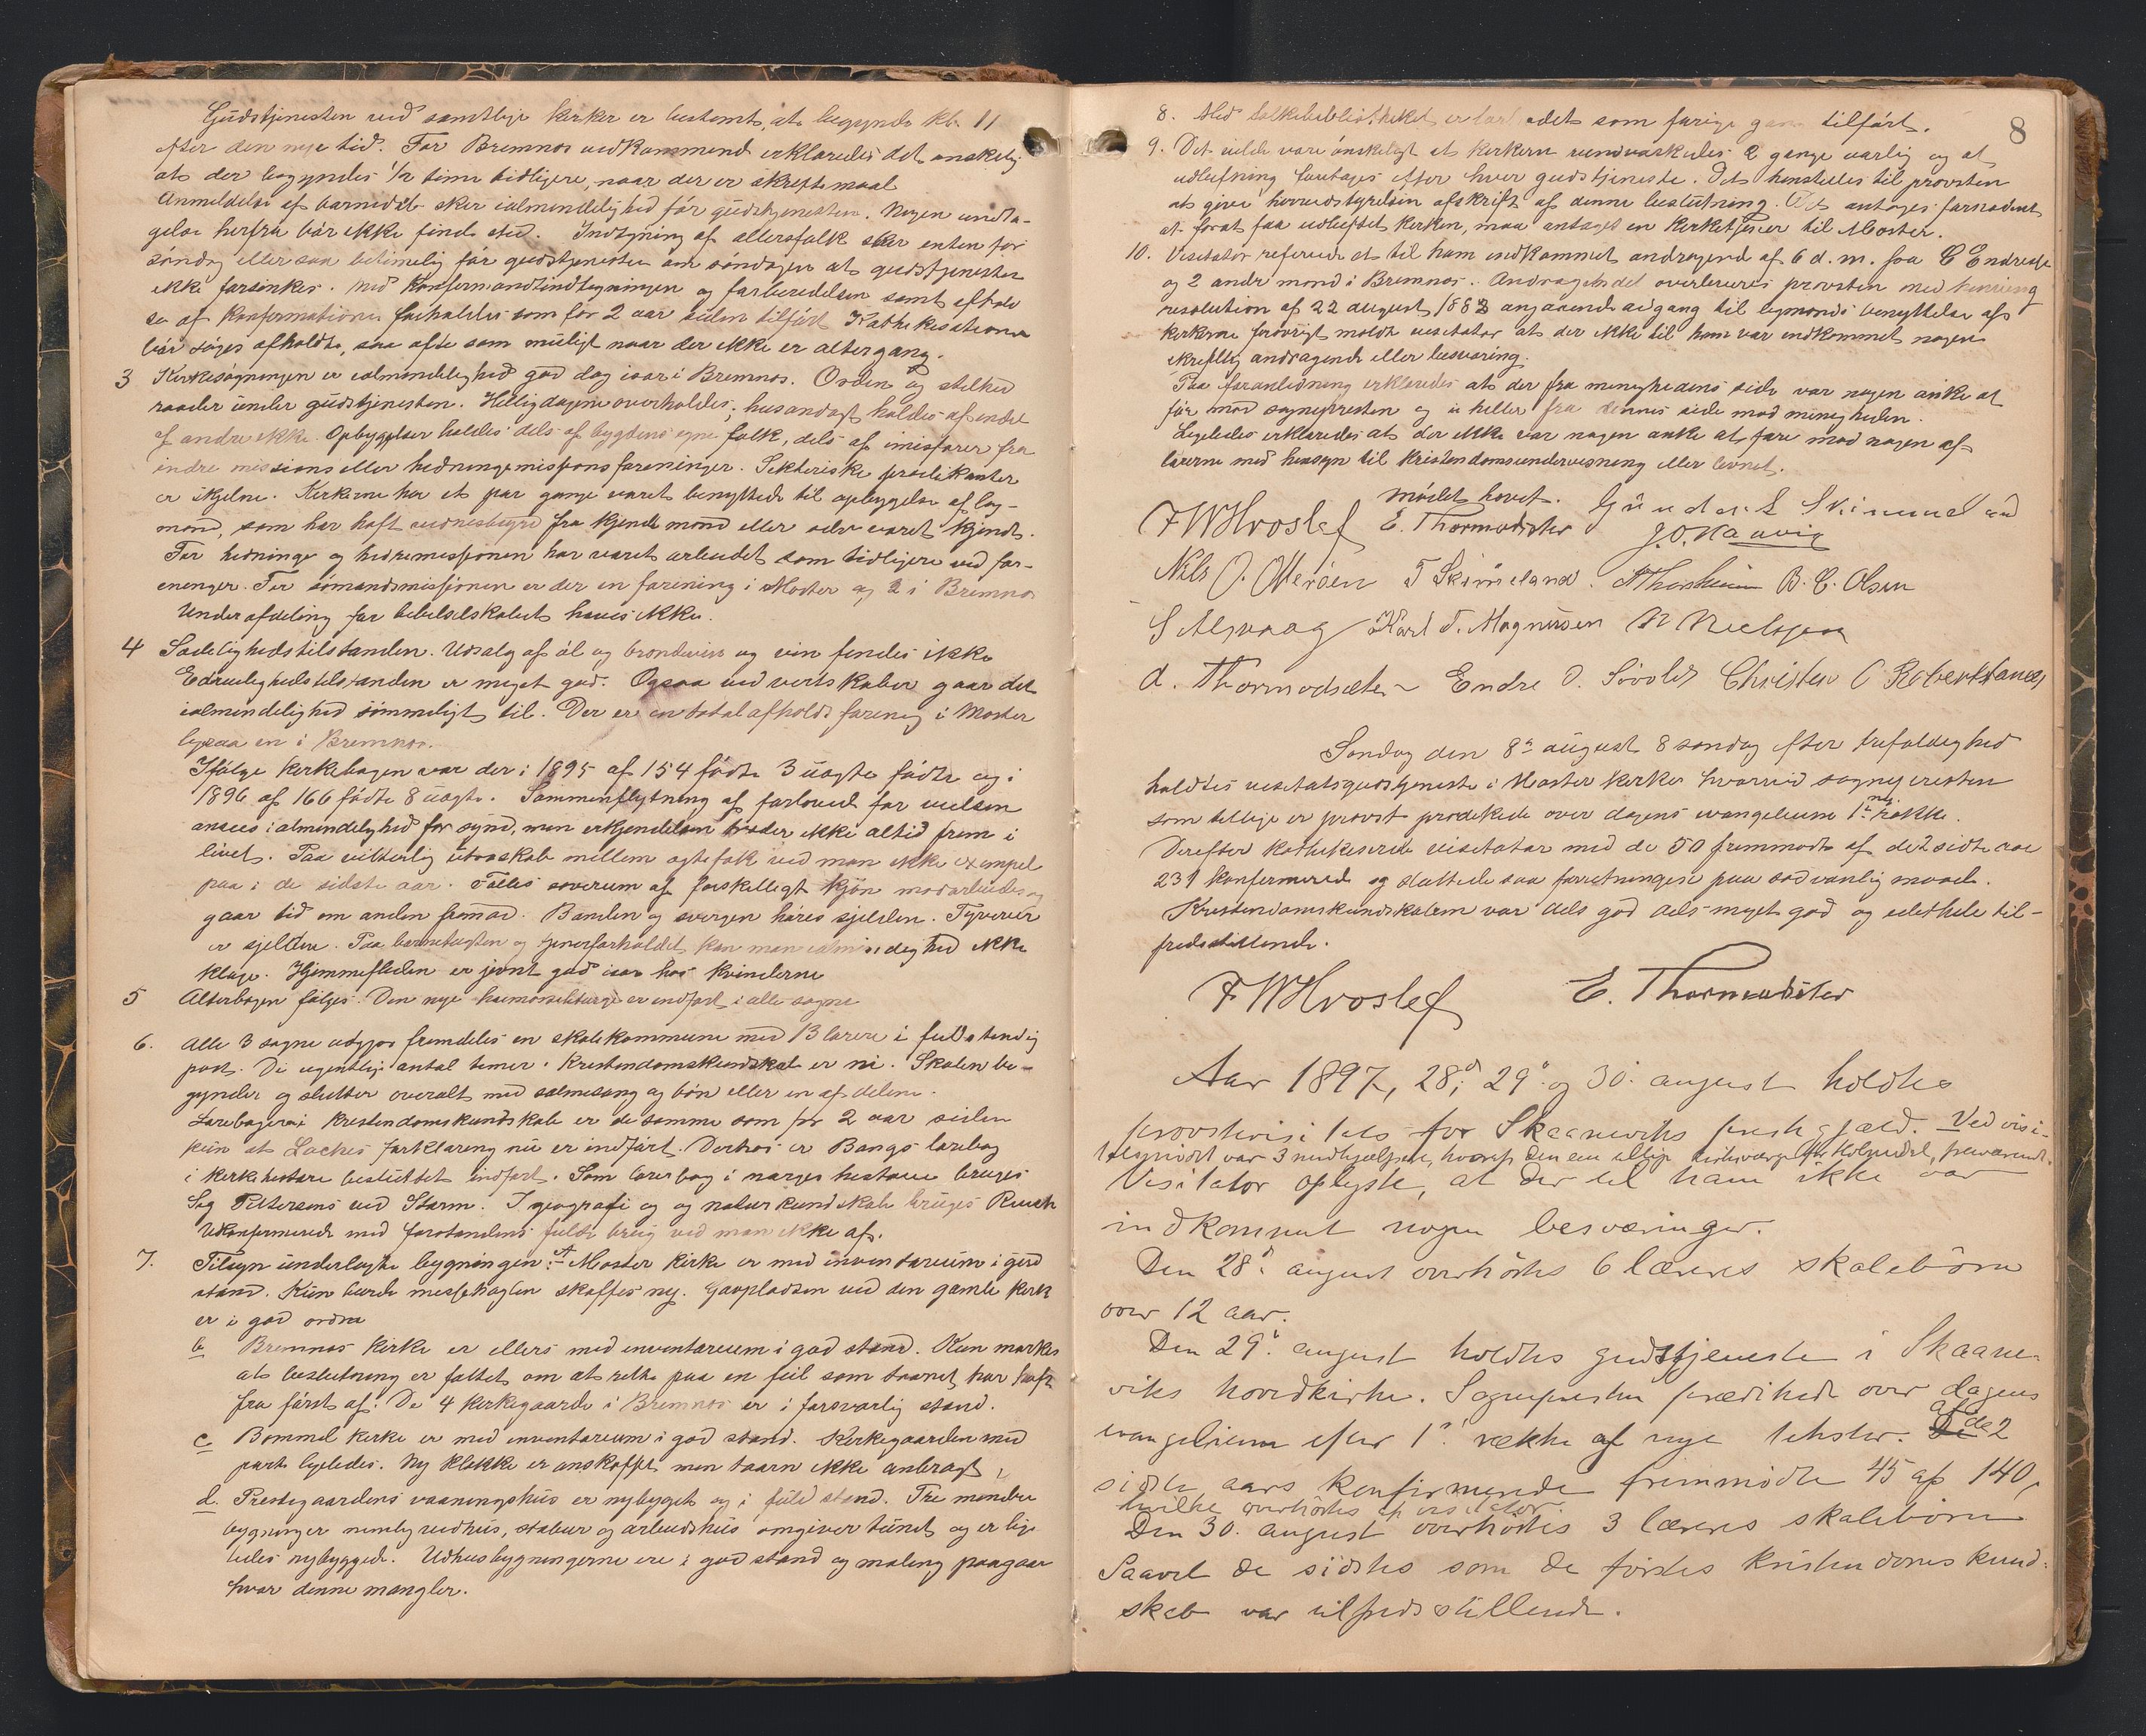 Gudstjenesten ved samtlige kirker er bestemt at begynde kl. 11
efter den nye tid. For Bremnes vedkommend erklæredes det ønskelig
at der begyndes 1/2 time tidligere, naar der er skriftemaal
Anmeldelse af barnedåb sker ialmindelighed før gudstjenesten. Nogen undta-
gelse herfra bør ikke finde sted. Indtegning af altersfolk sker enten før
søndag eller saa betimelig før gudstjenesten om søndagen at gudstjenesten
ikke forsinkes. Med konfirmandindtegningen og forberedelsen samt
af konfirmationen forholdes som for 2 aar siden tilført Kathekisationer
bør søges afholdte, saa ofte som muligt naar der ikke er altergang.
3 Kirkesøgningen er ialmindelighed god dog især i Bremnes. Orden og stilhed
raader under gudstjenesten. Helligdagene overholdes; husandagt holdes af endel
af andre ikke. Opbyggelser holdes dels af bygdens egne folk, dels af emisærer fra
indre missions eller hedningemissions foreninger. Sekteriske prædikanter
er skjelne. Kirkerne har et par gange været benyttede til opbyggelse af læg-
mænd, som har haft vidnesbyrd fra kjendte mænd eller selv været kjendt.
For hedninge og hedremissjonen har været arbeidet som tidligere ved for-
eninger. For sømandsmissjonen er der en forening i Moster og 2 i Bremnes
Underafdeling for bibelselskabet haves ikke.
4 Sædelighedstilstanden. Udsalg af øl og brændevin og vin findes ikke
Edruelighedstilstanden er meget god. Ogsaa ved vertskaber gaar det
ialmindelighed sømmeligt til. Der er en totalafholds forening i Moster
ligesaa en i Bremnes.
Ifølge kirkebogen var der i 1895 af 154 fødte 3 uægte fødte og i
1896 af 166 fødte 8 uægte. Sammenflytning af forlovede før vielsen
ansees ialmindelighed for synd, men erkjendelsen træder ikke altid frem i
livet. Paa vitterlig utroskab mellem ægtefolk ved man ikke exempel
paa i de sidste aar. Fælles soverum af forskelligt kjøn modarbeides og
gaar tid om anden fremad. Banden og svergen høres sjelden. Tyverier
er sjeldne. Paa børnetugten og tjenerforholdet kan man ialmindelighed ikke
klage. Hjemmefliden er jevnt god især hos kvinderne
5 Alterbogen følges. Den nye er indført i alle sogne
6. Alle 3 sogne udgjør fremdeles en skolekommune med 13 lærere i fuldstendig
post. De ugentlige antal timer i kristendomskundskab er ni. Skolen be-
gynder og slutter overalt med salmesang og bøn eller en af delene.
Lærebøgerne i kristendomskundskab er de samme som for 2 aar siden
kun at forklaring nu er indført. Derhos er Bangs lærebog
i kirkehistorie besluttet indført. Som lærebog i norges historie bruges
Sig Pettersens ved Storm. I geografi og og naturkundskab bruges
Ukonfirmerede med forstandens fulde brug ved man ikke af.
7. Tilsyn underlagte bygningen: A Moster kirke er med inventarium i god
stand. Kun burde messehaglen skaffes ny. Gravpladsen ved den gamle kirke
er i god orden
b Bremnes kirke er ellers med inventarium i god stand. Kun mærkes
at beslutning er fattet om at rette paa en feil som taarnet har haft
fra først af. De 4 kirkegaarde i Bremnes er i forsvarlig stand.
c Bømmel kirke er med inventarium i god stand. Kirkegaarden med
port ligeledes. Ny klokke er anskaffet men taarn ikke anbragt
d. Prestegaardens vaaningshus er nybygget og i fuld stand. Tre mindre
bygninger nemlig vedhus, stabur og arbeidshus omgiver tunet og er lige
ledes nybyggede. Udhusbygningerne ere i god stand og maling paagaar
hvor denne mangler.
8
8. Med folkebibliotheket er som forige gang tilført.
9. Det vilde være ønskeligt at kirkerne rundvaskedes 2 gange aarlig og at
udluftning foretages efter hver gudstjeneste. Det henstilles til provsten
at give herredsstyrelsen afskrift af denne beslutning. Det antages fornødent
at forat faa udluftet kirken, maa antaget en kirketjener til Moster.
10. Visitator refererede et til ham indkommet andragende af 6 d. m. fra C Endresen
og 2 andre mænd i Bremnes. Andragendet overleveres provsten med henvisning
resolution af 22 august 1888 angaaende adgang til legmænds benyttelse af
kirkerne forøvrigt meldte visitator at der ikke til ham var indkommet nogen
skriftlig andragende eller besværing.
Paa foranledning erklæredes at der fra menighedens side var nogen anke at
føre mod sognepresten og ei heller fra dennes side mod menigheden.
Ligeledes erklæredes at der ikke var nogen anke at føre mod nogen af
lærerne med hensyn til kristendomsundervisning eller levnet.
mødet hævet.
F W Hvoslef E. Thormodsæter Gunder S Skimmeland
J. O. Naavig
Nils O. T Skimeland. B. C. Olsen
S Alsvaag Karl T. Magnussen N Nielssen
A. Thormodsæter Endre O. Søvold Christen C Roberstanes
Søndag den 8de august 8 søndag efter trefoldighed
holdtes visitatsgudstjeneste i Moster kirke hvorved sognepresten
som tillige er provst prædikede over dagens evangelium 1ste ny række.
Derefter kathekiserede visitator med de 50 fremmødte af de 2 sidste aar
231 konfirmerede og sluttede saa forretningen paa sædvanlig maade.
Kristendomskundskaben var dels god dels meget god og idethele til-
fredsstillende.
F W Hvoslef E. Thormodsæter
Aar 1897, 28de, 29de og 30. august holdtes
provstevisitats for Skaanevik prestegjæld. Ved visi-
tasmødet var 3 medhjælpere, hvoraf den ene tillige kirkeværge
Visitator oplyste, at der til ham ikke var
indkommet nogen besværinger.
Den 28de august overhørtes 6 læreres skolebørn
over 12 aar.
Den 29de august holdtes gudstjeneste i Skaane-
viks hovedkirke. Sognepresten prædikede over dagens
evangelium efter 1ste række af nye tekster. Af de 2
sidste aars konfirmerede fremmødte 45 af 140,
hvilke overhørtes af visitator.
Den 30. august overhørtes 3 læreres skolebørn
Saavel de sidstes som de førstes kristendomskund-
skab var tilfredsstillende.